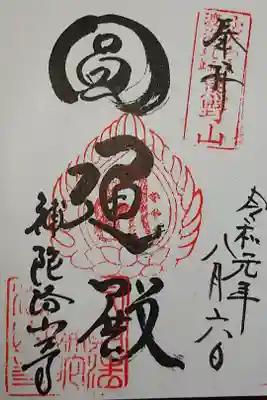 奉拝
令和元年
八月六日
圓通殿
補陀洛山寺